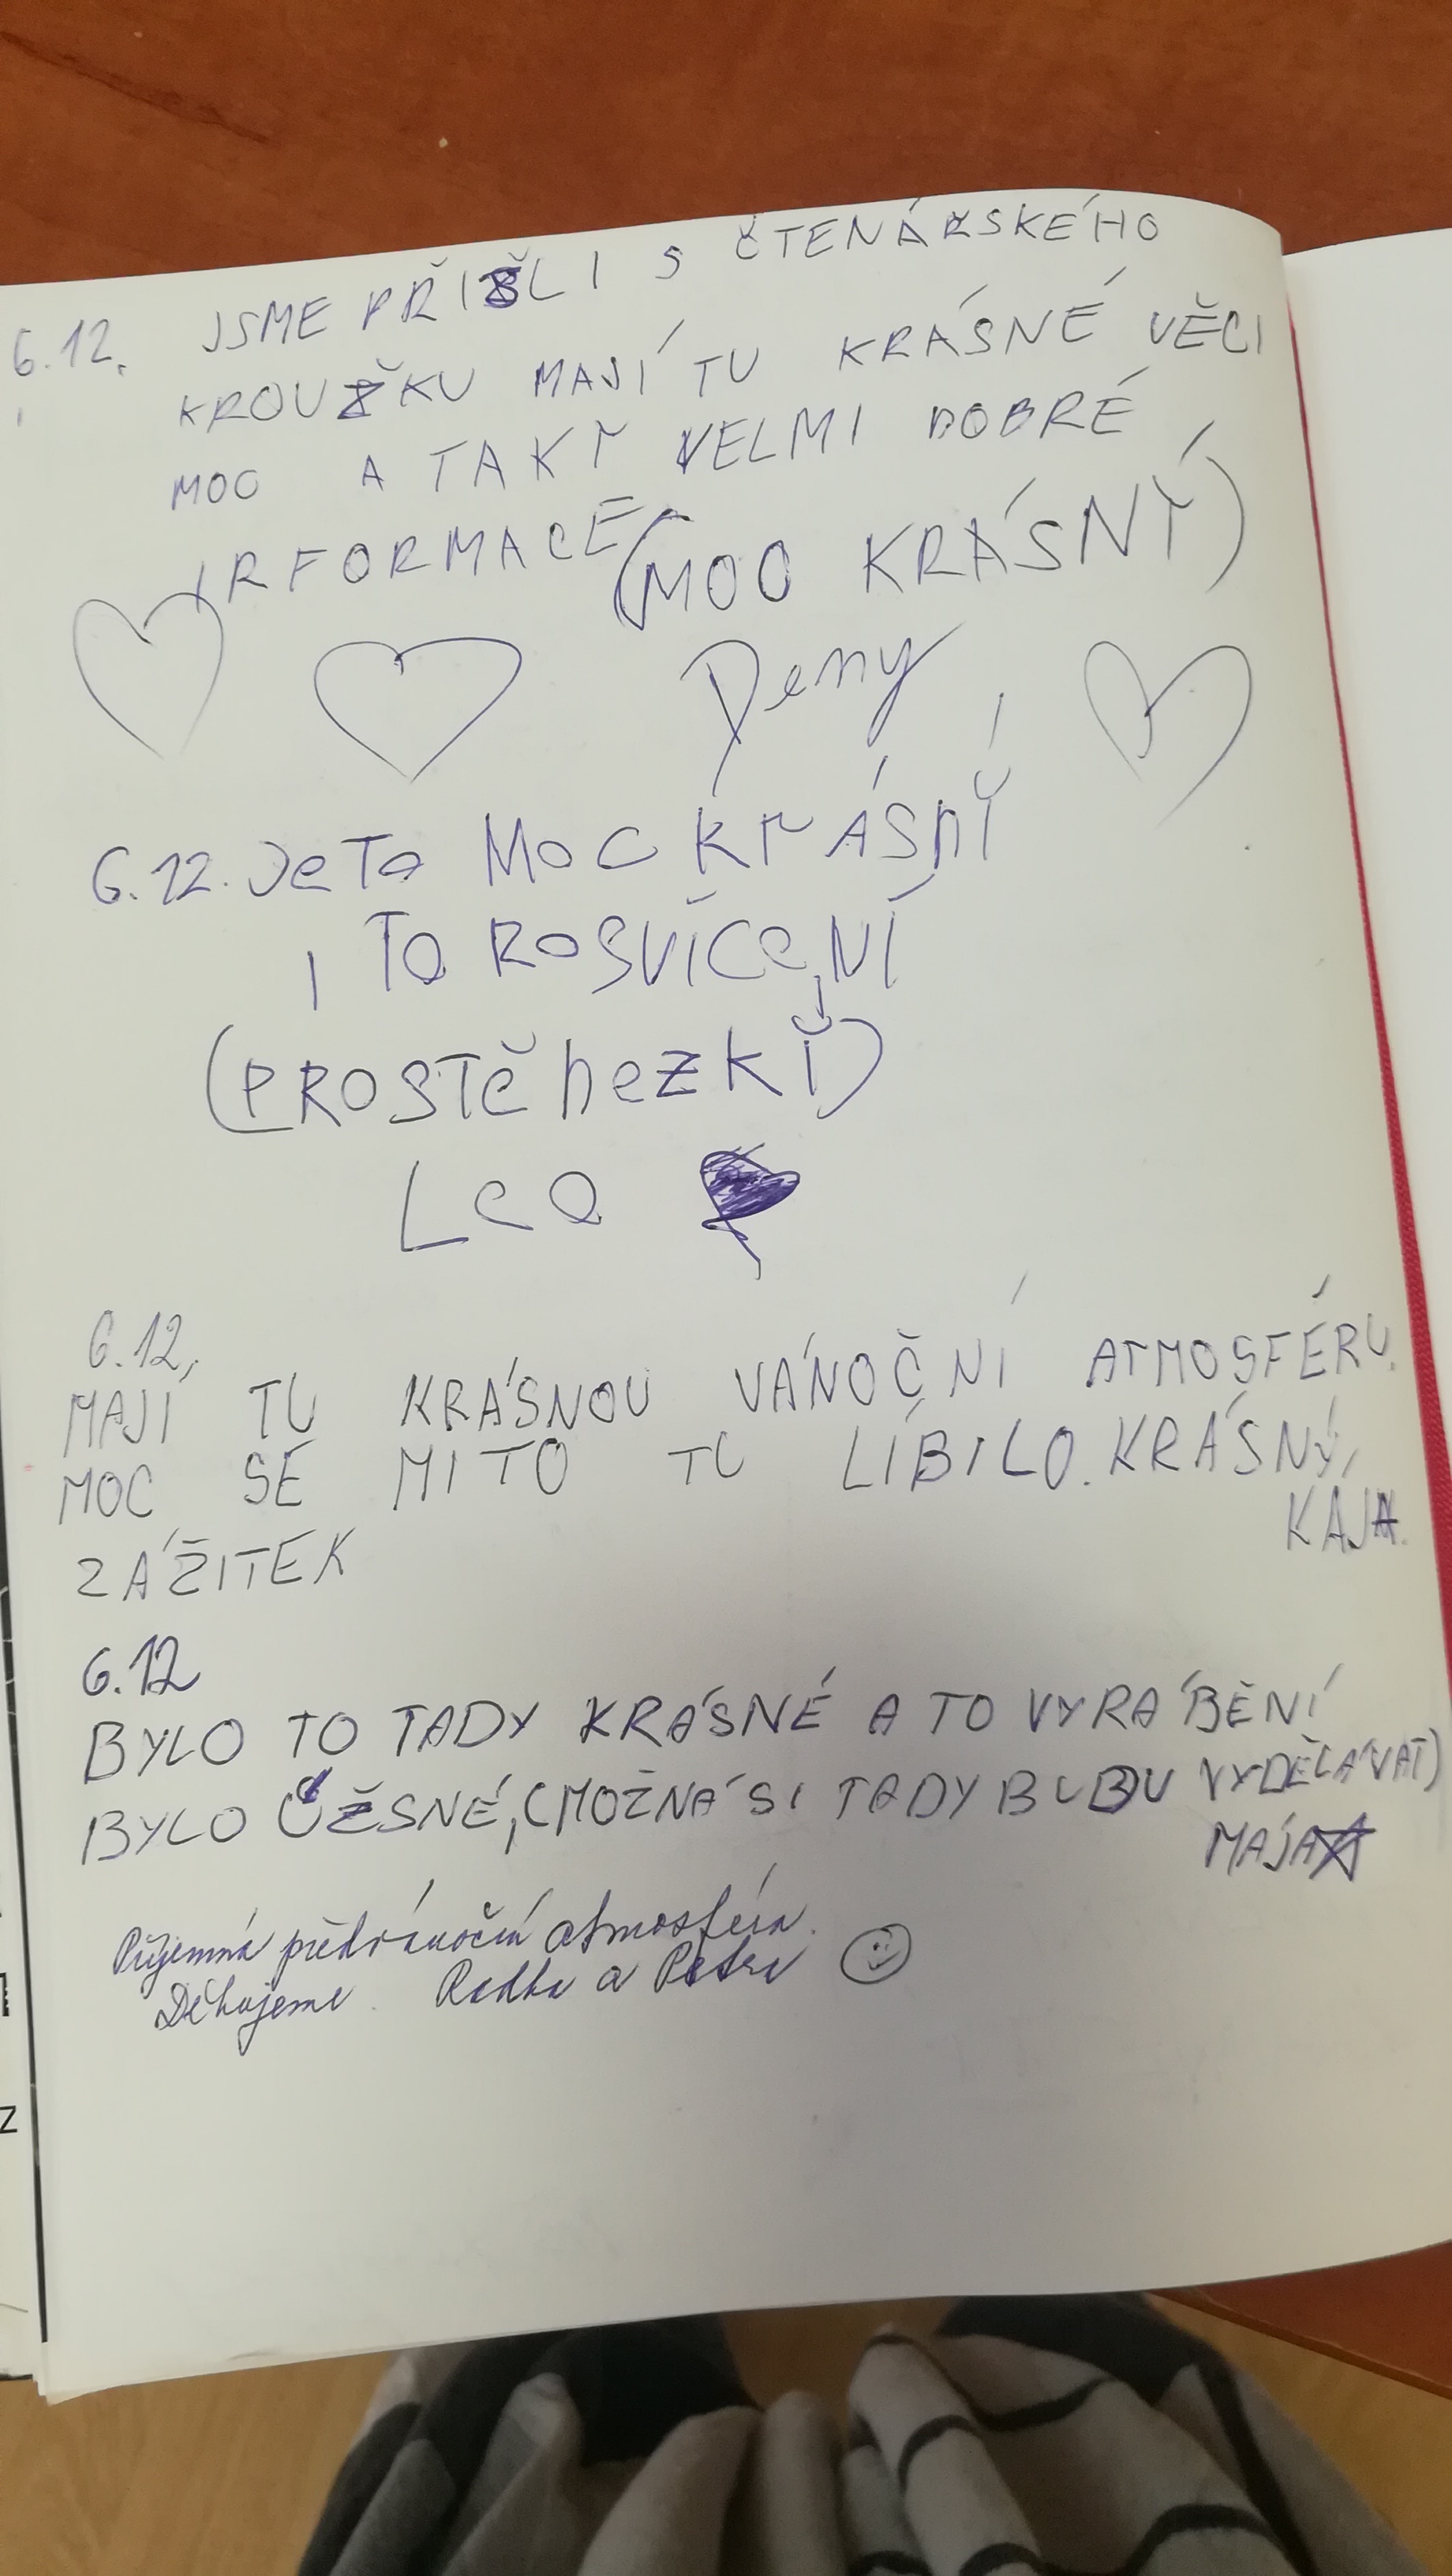 6.12. JSME PŘIŠLI S ČTENÁŘSKÉHO
KROUŽKU MAJÍ TU KRÁSNÉ VĚCI
MOC A TAKY VELMI DOBRÉ
IRFORMACE (MOC KRÁSNÝ)
Deny
6.12. Je To MOC KrÁSnÝ
I TO ROSVÍCeNÍ
(PROSTĚ heZKÝ)
Leo
6.12.
MAJÍ TU KRÁSNOU VÁNOČNÍ ATMOSFÉRU.
MOC SE MI TO TU LÍBILO. KRÁSNÝ
ZÁŽITEK KÁJA.
6.12
BYLO TO TADY KRÁSNÉ A TO VYRÁBĚNÍ
BYLO ÚŽSNÉ, (MOŽNÁ SI TADY BUDU VYDĚLÁVAT)
MÁJA
Příjemná předvánoční atmosféra.
Děkujeme. Radka a Petra